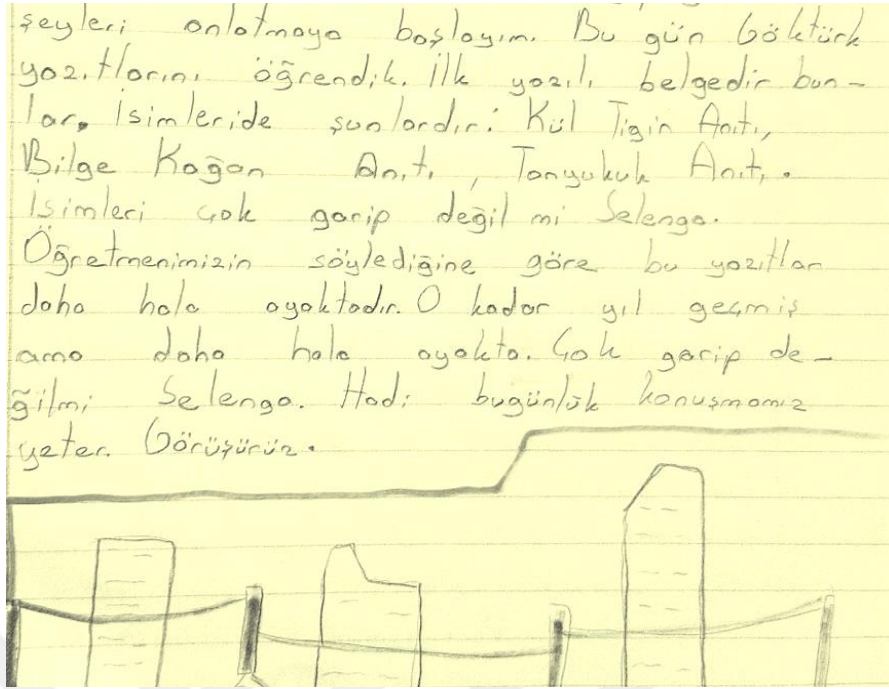 şeyleri anlatmaya başlayım. Bu gün Göktürk
yazıtlarını öğrendik. İlk yazılı belgedir bun-
lar. İsimleride şunlardır: Kül Tigin Anıtı,
Bilge Kağan Anıtı, Tonyukuk Anıtı.
İsimleri çok garip değil mi Selenga.
Öğretmenimizin söylediğine göre bu yazıtlar
daha hala ayaktadır. O kadar yıl geçmiş
ama daha hala ayakta. Çok garip de-
ğilmi Selenga. Hadi bugünlük konuşmamız
yeter. Görüşürüz.